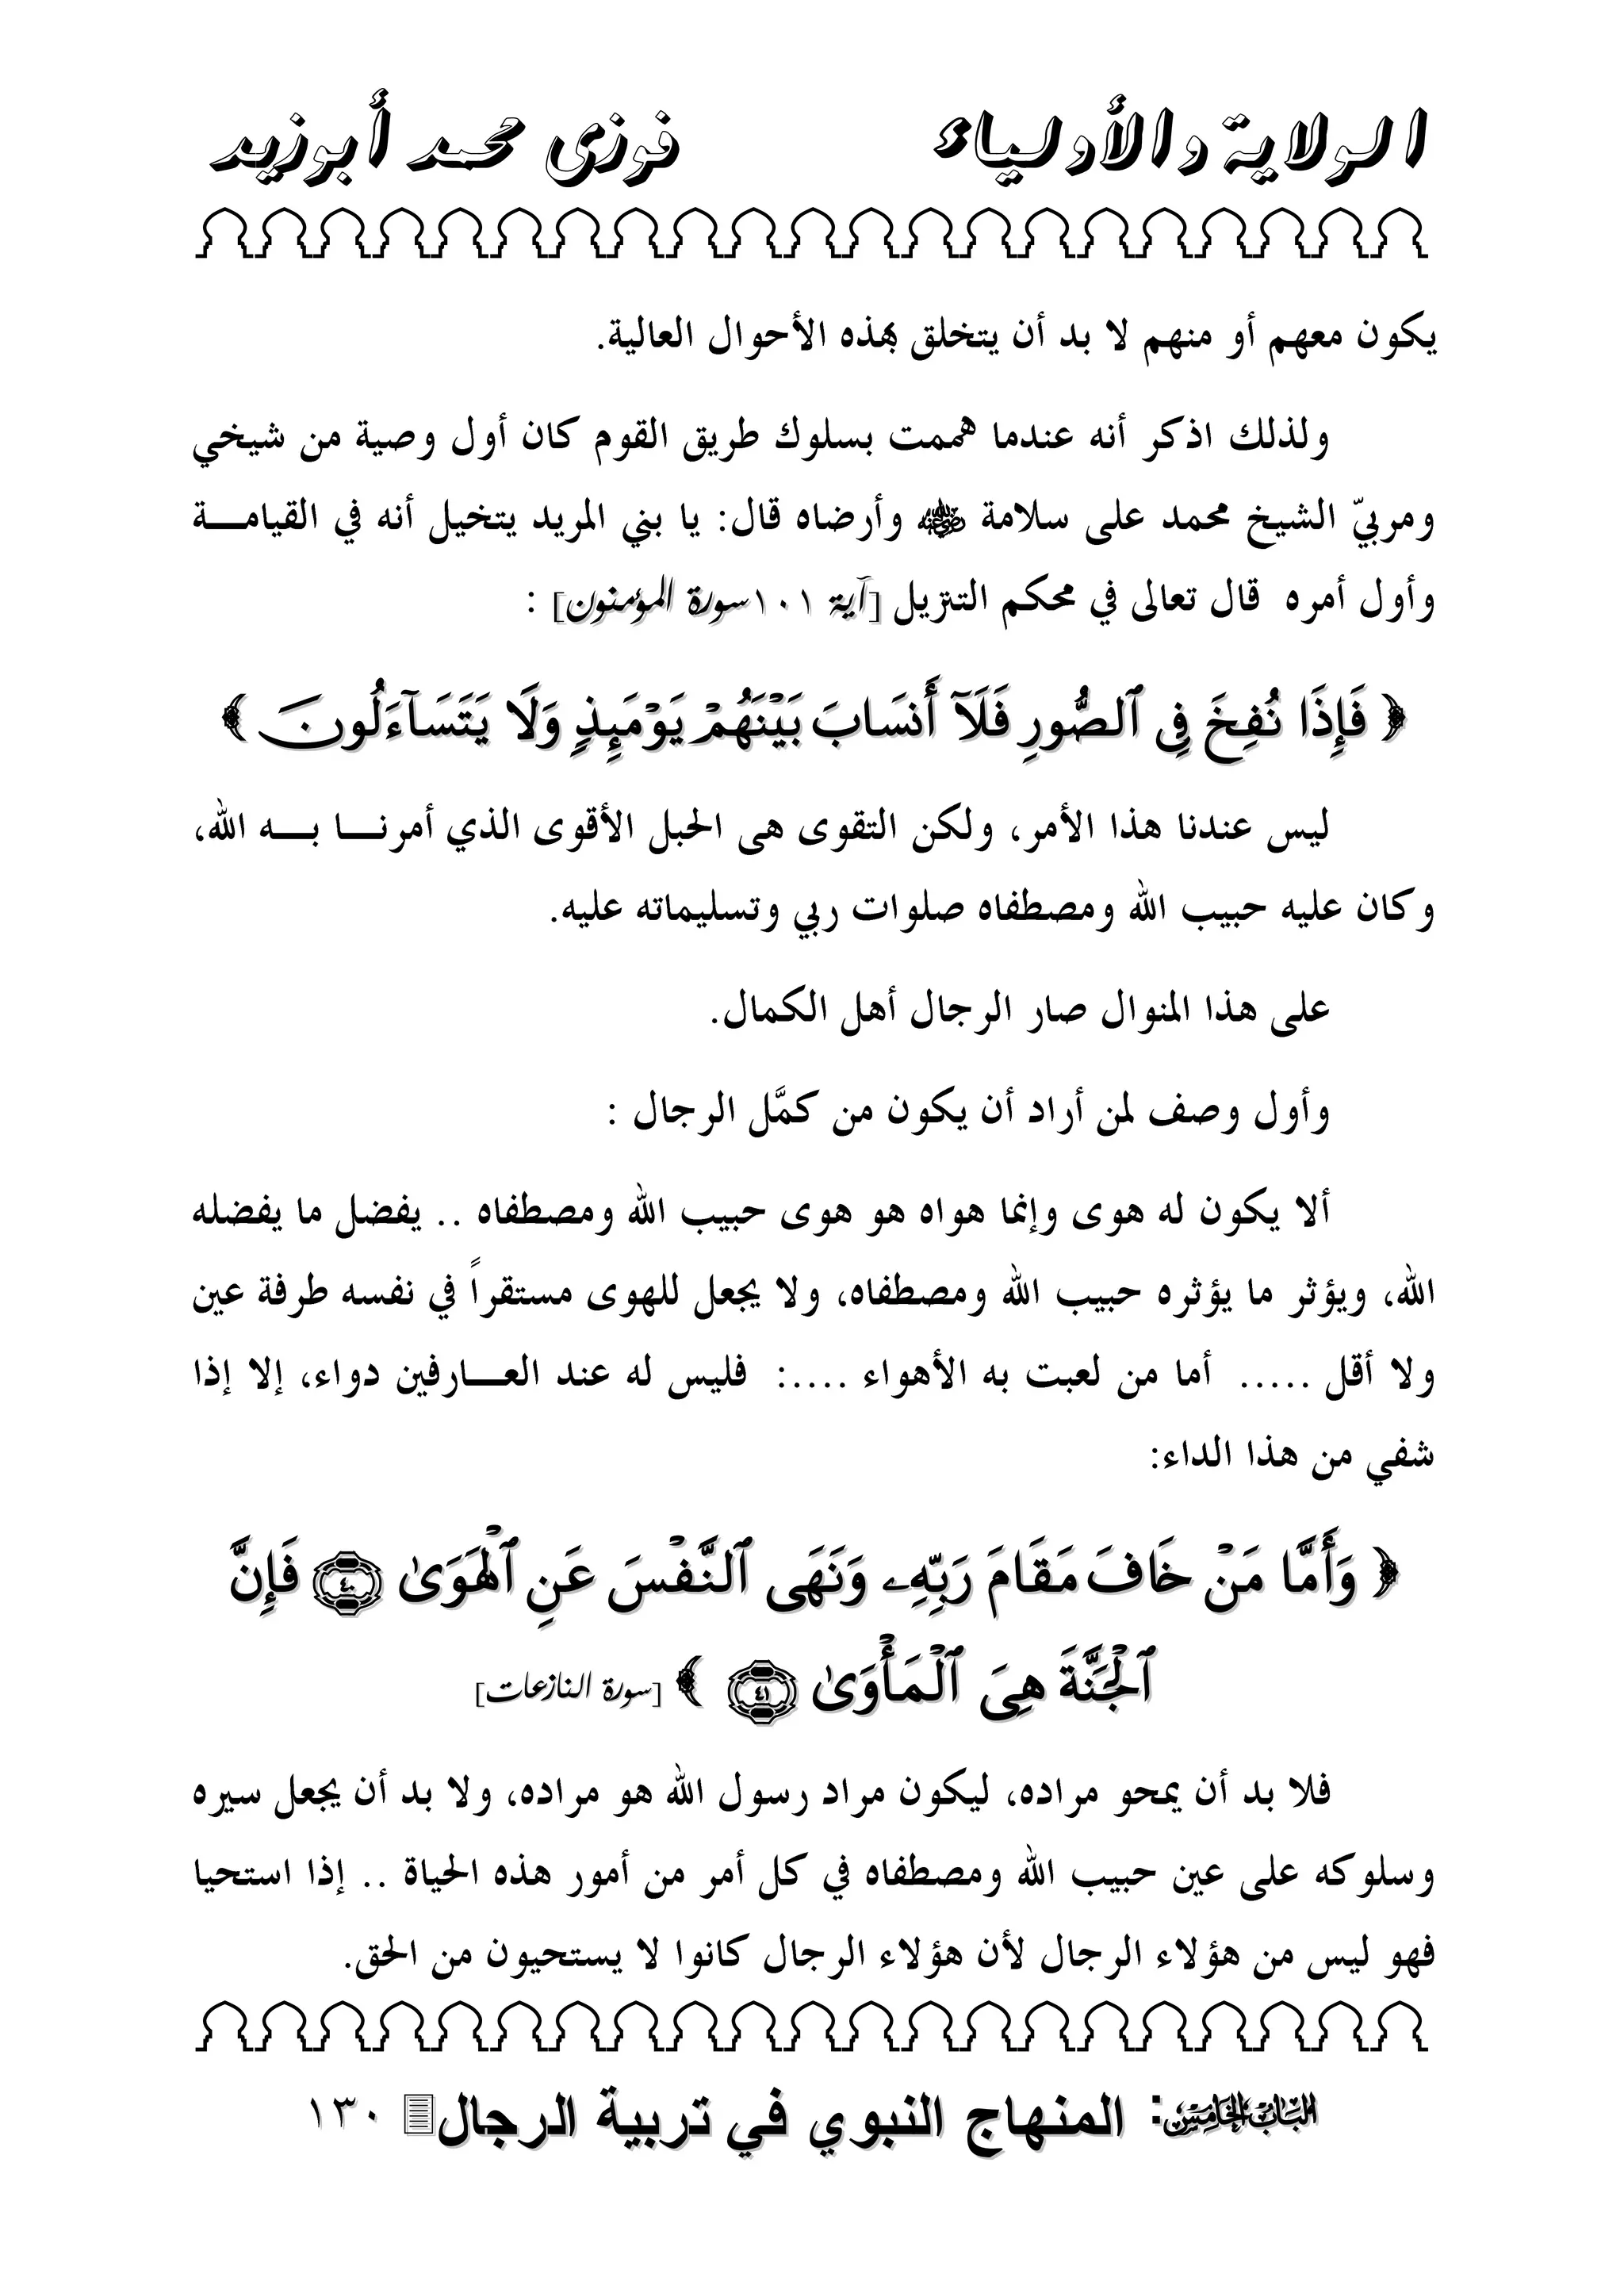 الولاية والأولياء فوزى محمد أبوزيد
يكون معهم أو منهم لا بد أن يتخلق بهذه الأحوال العالية.
ولذلك اذكر أنه عندما هممت بسلوك طريق القوم كان أول وصية من شيخي
ومربيّ الشيخ محمد على سلامة ﷺ وأرضاه قال: يا بني المريد يتخيل أنه في القيامـــة
وأول أمره قال تعالى في محكم التنزيل [آية ١٠١سورة المؤمنون] :
﴿ فَإِذَا نُفِخَ فِى ٱلصُّورِ فَلَآ أَنسَابَ بَيْنَهُمْ يَوْمَئِذٍ وَلَا يَتَسَآءَلُونَ ﴾
ليس عندنا هذا الأمر، ولكن التقوى هى الحبل الأقوى الذي أمرنـــا بـــه الله،
وكان عليه حبيب الله ومصطفاه صلوات ربي وتسليماته عليه.
على هذا المنوال صار الرجال أهل الكمال.
وأول وصف لمن أراد أن يكون من كمَّل الرجال :
ألا يكون له هوى وإنما هواه هو هوى حبيب الله ومصطفاه .. يفضل ما يفضله
الله، ويؤثر ما يؤثره حبيب الله ومصطفاه، ولا يجعل للهوى مستقراً في نفسه طرفة عين
ولا أقل ..... أما من لعبت به الأهواء ....: فليس له عند العـــارفين دواء، إلا إذا
شفي من هذا الداء:
﴿ وَأَمَّا مَنْ خَافَ مَقَامَ رَبِّهِۦ وَنَهَى ٱلنَّفْسَ عَنِ ٱلْهَوَىٰ ٤٠ فَإِنَّ
ٱلْجَنَّةَ هِىَ ٱلْمَأْوَىٰ ٤١ ﴾ [سورة النازعات]
فلا بد أن يمحو مراده، ليكون مراد رسول الله هو مراده، ولا بد أن يجعل سيره
وسلوكه على عين حبيب الله ومصطفاه في كل أمر من أمور هذه الحياة .. إذا استحيا
فهو ليس من هؤلاء الرجال لأن هؤلاء الرجال كانوا لا يستحيون من الحق.
الباب الخامس: المنهاج النبوي في تربية الرجال ١٣٠